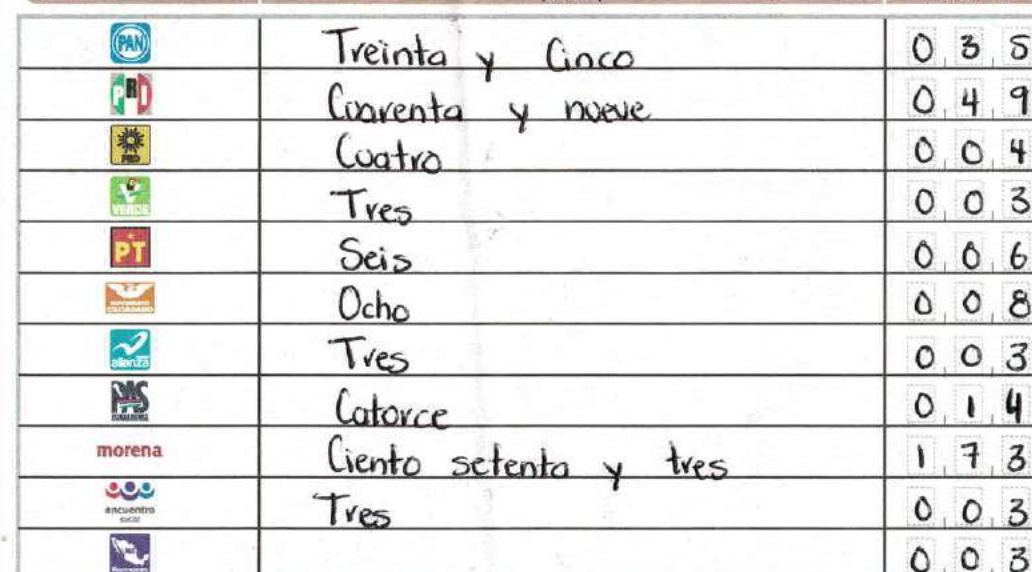 PAN Treinta y Cinco 0 3 5
PRI Cuarenta y nueve 0 4 9
PRD Cuatro 0 0 4
VERDE Tres 0 0 3
PT Seis 0 0 6
MOVIMIENTO CIUDADANO Ocho 0 0 8
alianza Tres 0 0 3
PAS Catorce 0 1 4
morena Ciento setenta y tres 1 7 3
encuentro social Tres 0 0 3
0 0 3